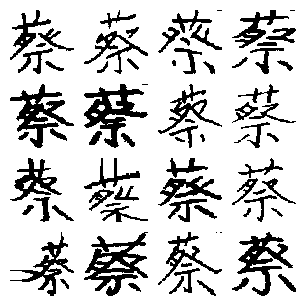 蔡蔡蔡蔡
蔡蔡蔡蔡
蔡蔡蔡蔡
蔡蔡蔡蔡